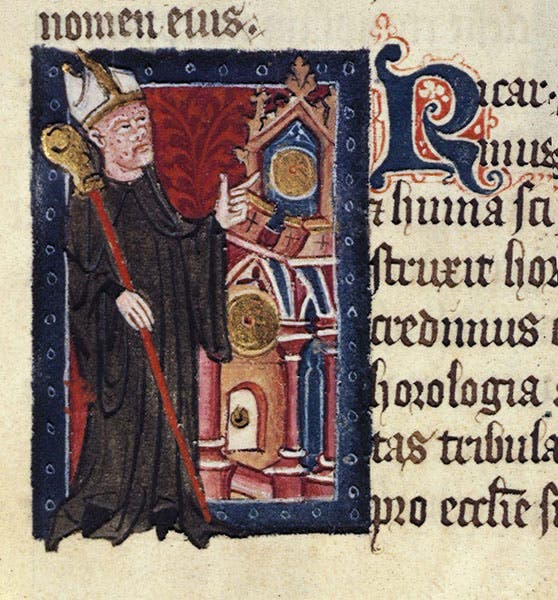 nomen eius.
Ricar.
mus
⁊ huma sci
struxit hor
credimus
horologia
tas tribula
pro eccl̅ie